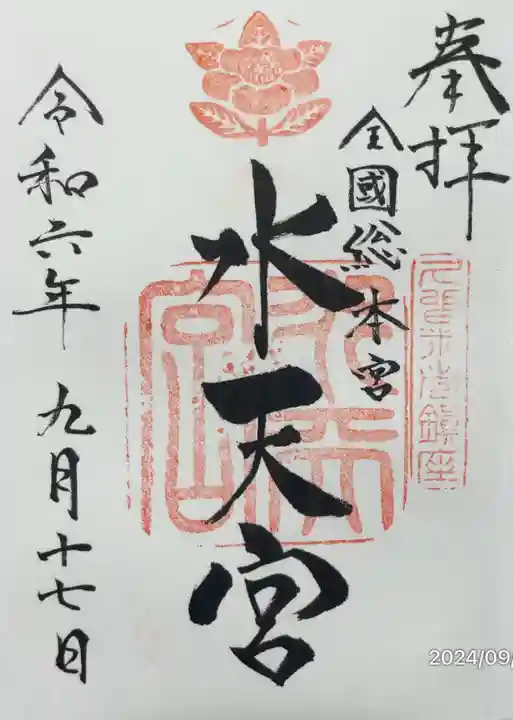 奉拝
全國総本宮
水天宮
令和六年 九月十七日
2024/09/